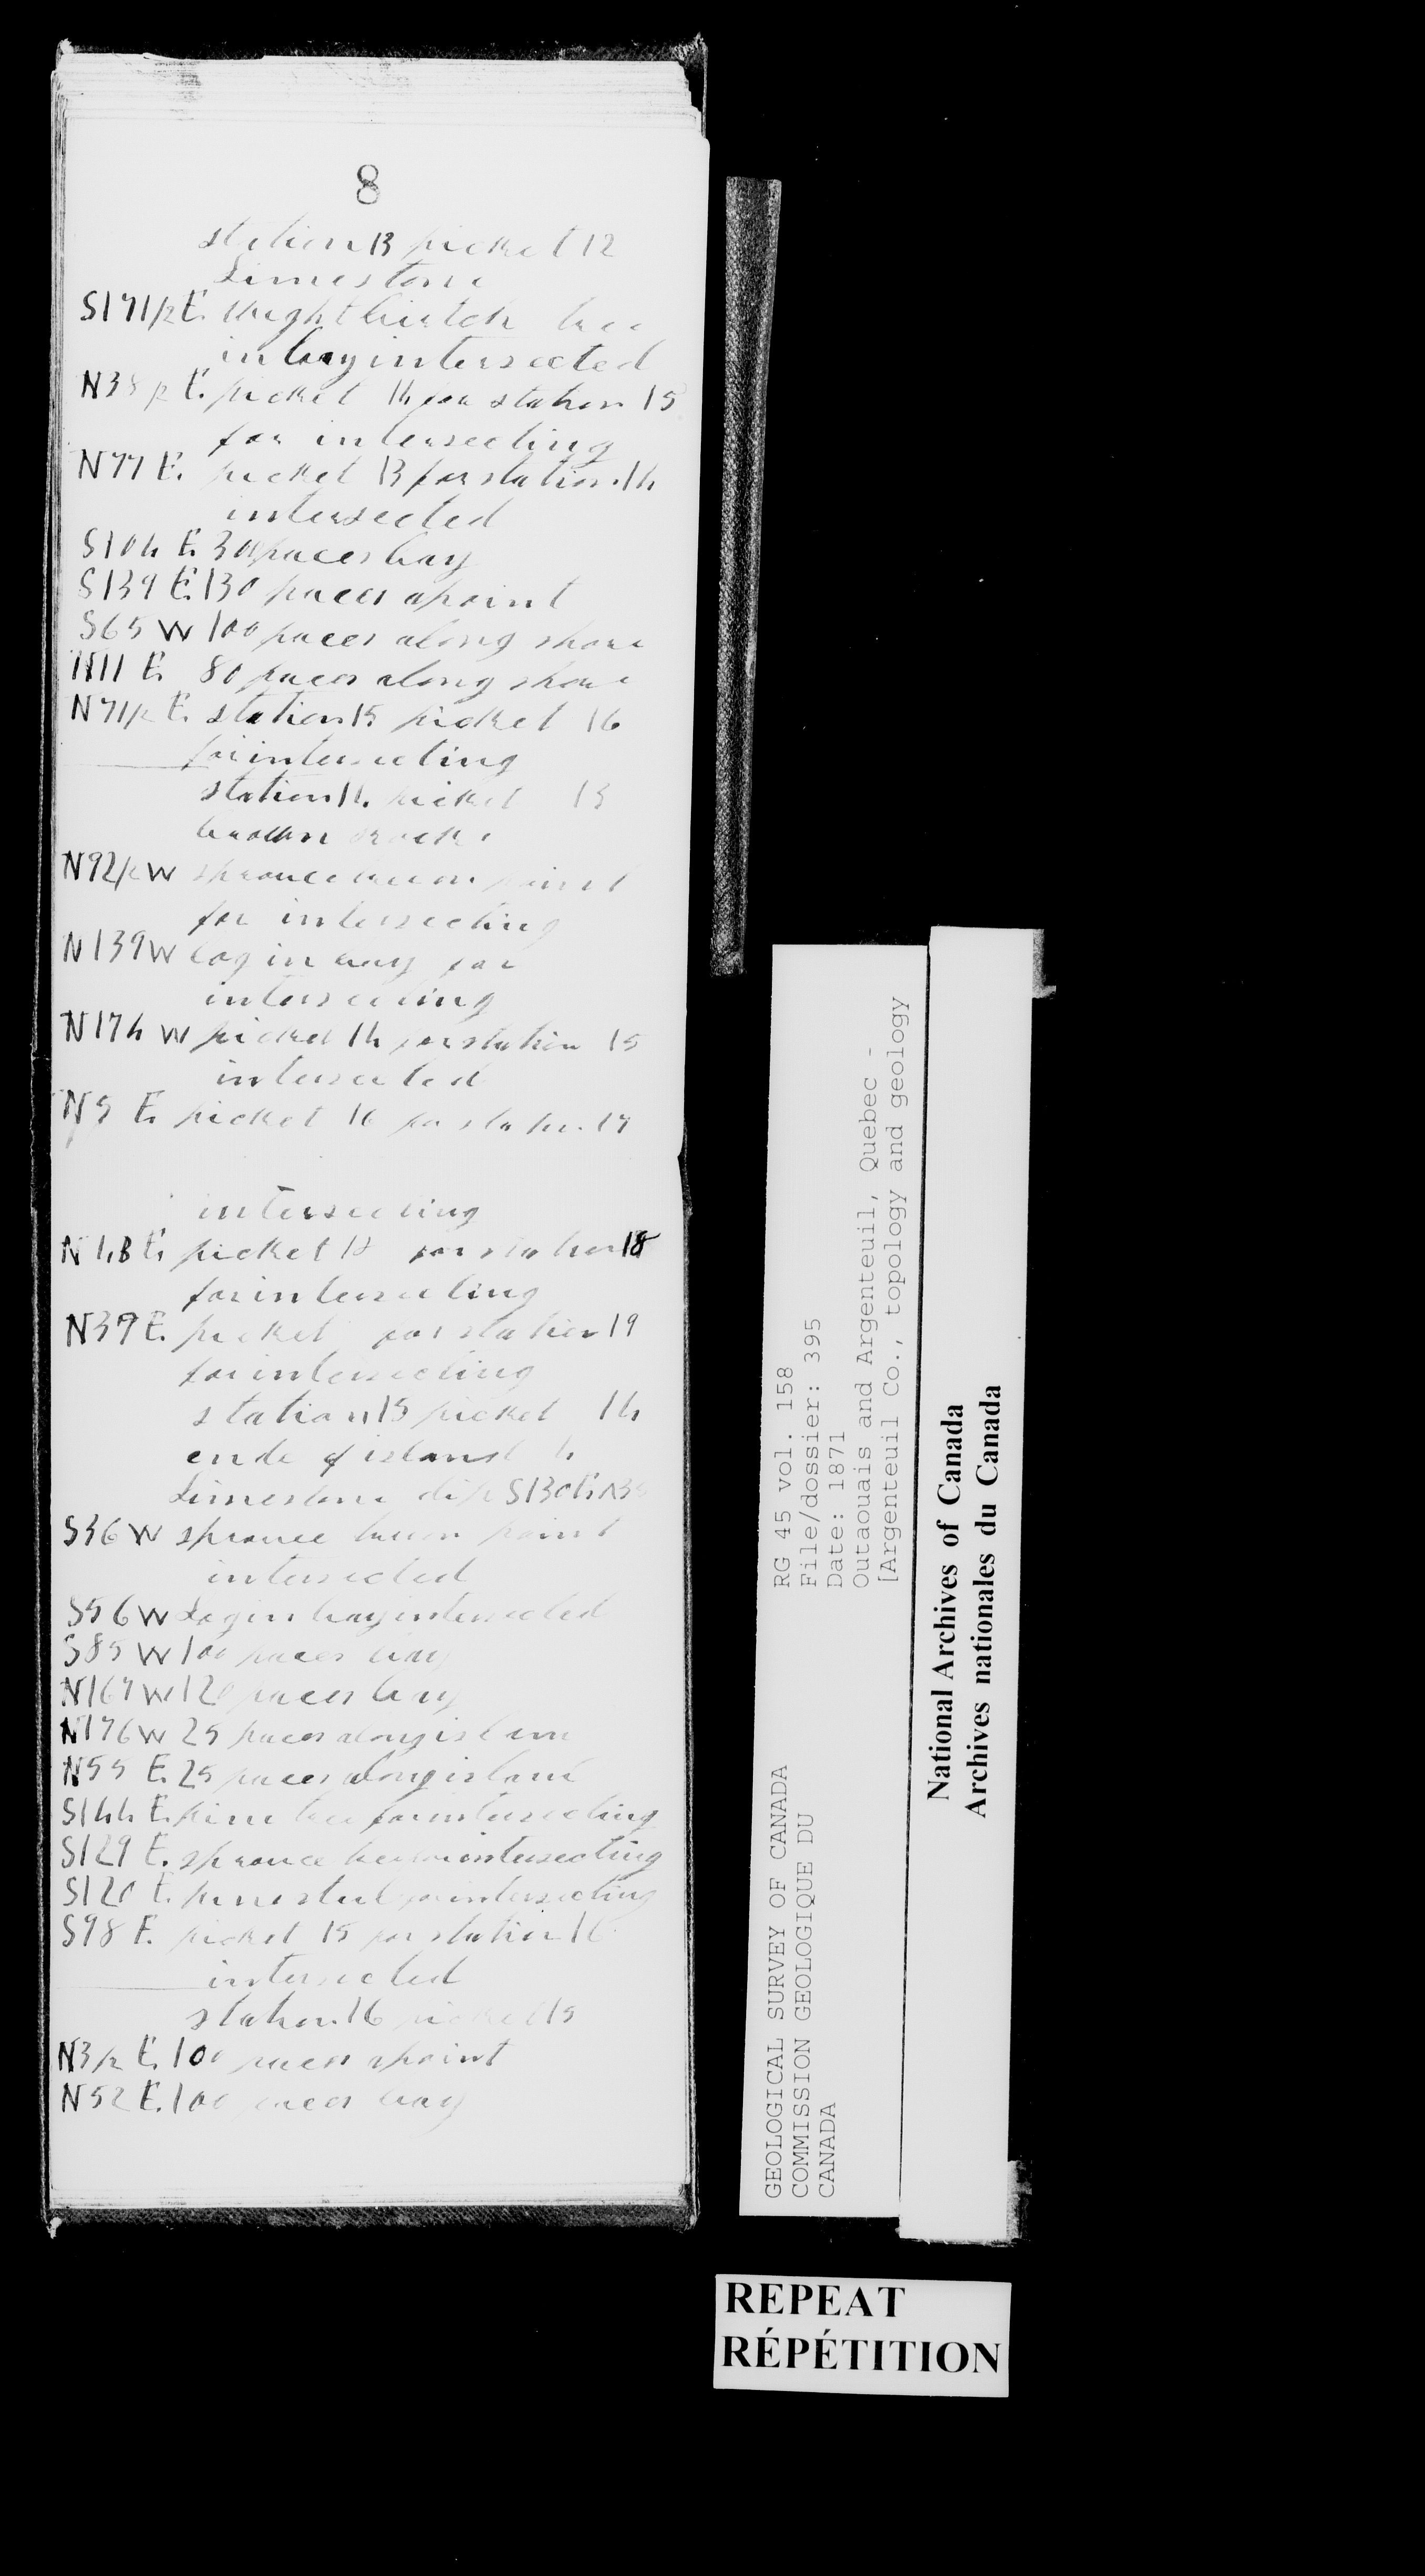 8
station 13 picket 12
Limestone
S171/2 E. Bright birtch tree
in bay intersected
N38/2 E. picket 14 for station 15
for intersecting
N77 E. picket 13 for station 14
intersected
S104 E. 30 paces bay
S139 E. 130 paces apoint
S65 W 100 paces along shore
N11 E. 80 paces along shore
N71/2 E. station 15 picket 16
for intersecting
station 14 picket 13
brown rock
N92/2 W sprouce tree on point
for intersecting
N139 W log in bay for
intersecting
N174 W picket 14 for station 15
intersected
N5 E. picket 16 for station 17
intersecting
N 43 E. picket for station 18
for intersecting
N39 E. picket for station 19
for intersecting
station 15 picket 14
ende of island 4
Limestone dip S130 E
S36 W sprouce tree on point
intersected
S56 W Log in bay intersected
S85 W 100 paces bay
N167 W 120 paces bay
N176 W 25 paces along islan
N55 E. 25 paces along island
S144 E. pine tree for intersecting
S129 E. sprouce tree for intersecting
S120 E. pine stub for intersecting
S98 E. picket 15 for station 16
intersected
station 16 picket 15
N3/2 E. 100 paces apoint
N52 E. 100 paces bay
GEOLOGICAL SURVEY OF CANADA
COMMISSION GEOLOGIQUE DU
CANADA
RG 45 vol. 158
File/dossier: 395
Date: 1871
Outaouais and Argenteuil, Quebec -
[Argenteuil Co., topology and geology
National Archives of Canada
Archives nationales du Canada
REPEAT
RÉPÉTITION